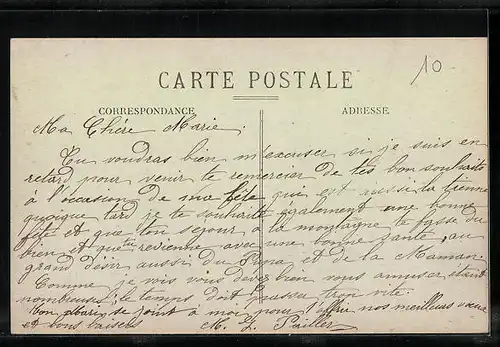 10
CARTE POSTALE
CORRESPONDANCE
ADRESSE
Ma Chère Marie,
Tu voudras bien m'excuser si je suis en
retard pour venir te remercier de tes bon souhaits
à l'occasion de ma fête qui est aussi la tienne
quoique tard je te souhaite également une bonne
fête et que ton sejour à la montagne te fasse du
bien et que tu revienne avec une bonne santé, au
grand désir aussi du Papa et de la Maman.
Comme je vois vous devez bien vous amuser étant
nombreuses; le temps doit passer trop vite.
Mon mari se joint à moi pour t'offrir nos meilleurs vœux
et bons baisers M. L.